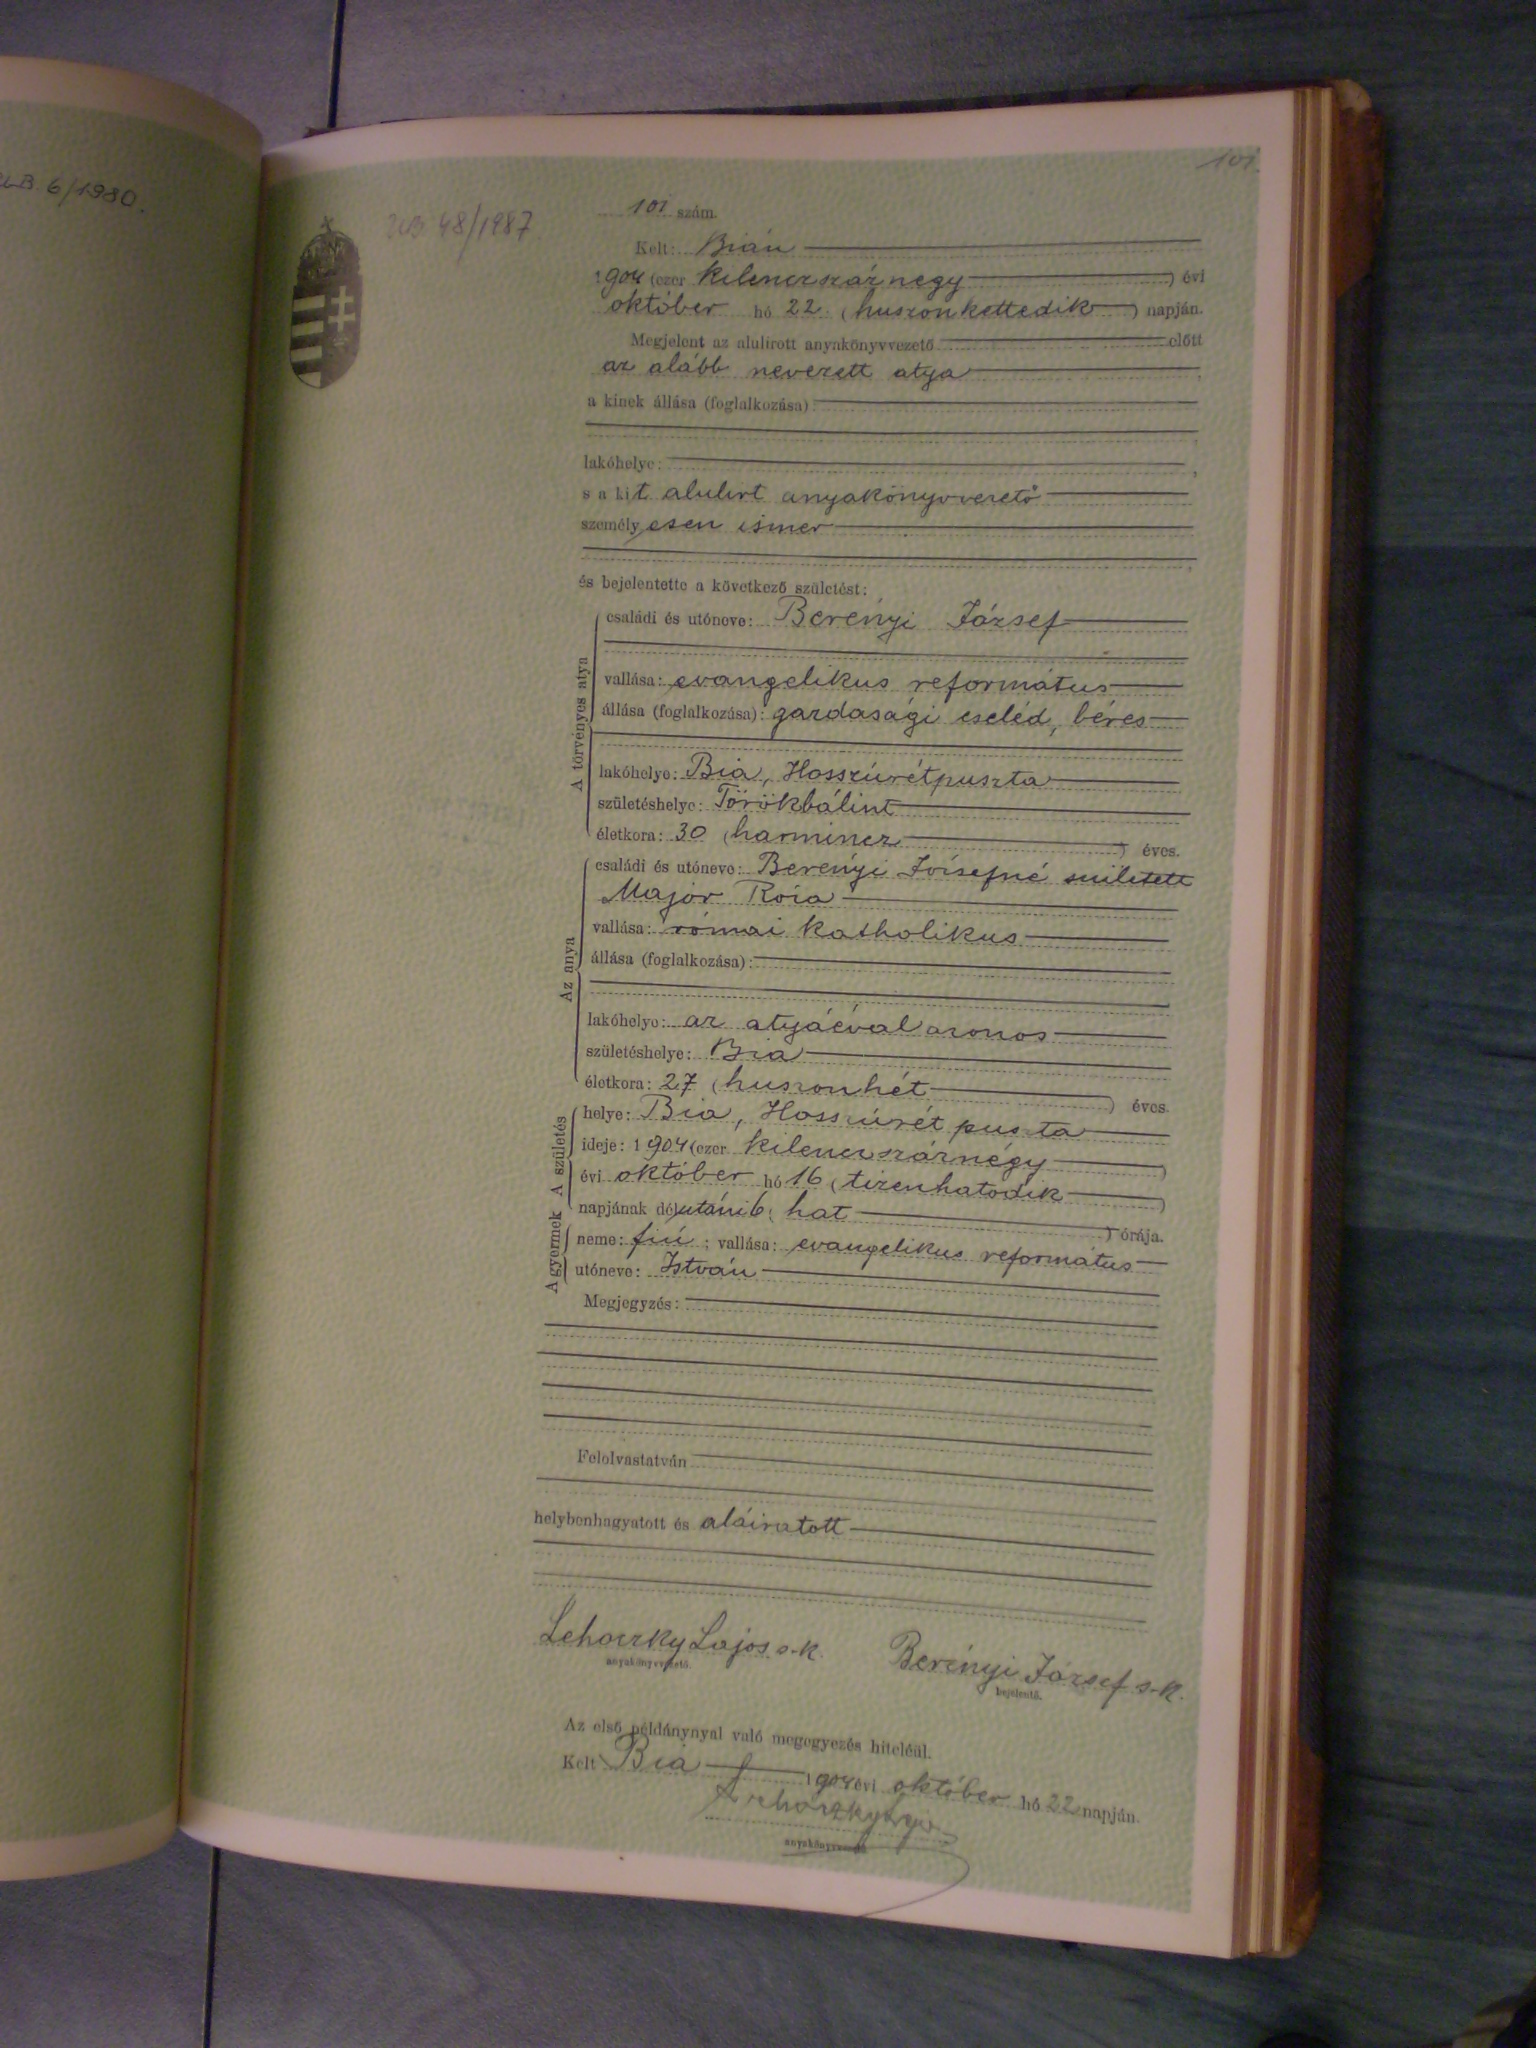 6/1980.
101.
48/1987
101 szám.
Kelt: Bián
1904 (ezer kilenczszáznegy ) évi
október hó 22. (huszonkettedik ) napján.
Megjelent az alulirott anyakönyvvezető előtt
az alább nevezett atya
a kinek állása (foglalkozása):
lakóhelye: ,
s a kit alulirt anyakönyvvezető
személyesen ismer
,
és bejelentette a következő születést:
A törvényes atya
családi és utóneve: Berényi József
vallása: evangelikus református
állása (foglalkozása): gazdasági cseléd, béres
lakóhelye: Bia, Hosszúrétpuszta
születéshelye: Törökbálint
életkora: 30 (harmincz ) éves.
Az anya
családi és utóneve: Berényi Józsefné született
Major Róza
vallása: római katholikus
állása (foglalkozása):
lakóhelye: az atyáéval azonos
születéshelye: Bia
életkora: 27 (huszonhét ) éves.
A születés
helye: Bia, Hosszúrét puszta
ideje: 1904 (ezer kilenczszáznégy )
évi október hó 16 (tizenhatodik )
napjának délutáni 6 ( hat ) órája.
A gyermek
neme: fiú ; vallása: evangelikus református
utóneve: István
Megjegyzés:
Felolvastatván
helybenhagyatott és aláiratott
Lehoczky Lajos s.k. Berényi József s.k.
anyakönyvvezető. bejelentő.
Az első példánynyal való megegyezés hiteléül.
Kelt Bia 1904 évi október hó 22 napján.
anyakönyvvezető